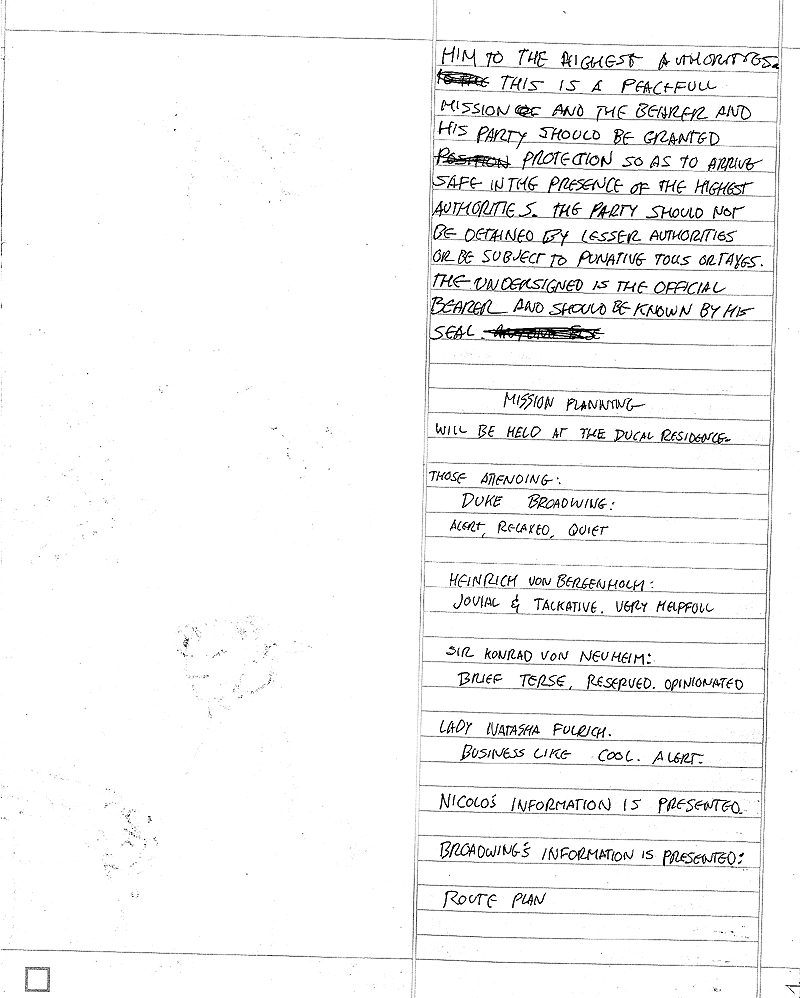 HIM TO THE HIGHEST AUTHORITIES.
THIS IS A PEACEFULL
MISSION AND THE BEARER AND
HIS PARTY SHOULD BE GRANTED
POSITION PROTECTION SO AS TO ARRIVE
SAFE IN THE PRESENCE OF THE HIGHEST
AUTHORITIES. THE PARTY SHOULD NOT
BE DETAINED BY LESSER AUTHORITIES
OR BE SUBJECT TO PUNATIVE TOLLS OR TAXES.
THE UNDERSIGNED IS THE OFFICIAL
BEARER AND SHOULD BE KNOWN BY HIS
SEAL.
MISSION PLANNING
WILL BE HELD AT THE DUCAL RESIDENCE.
THOSE ATTENDING:
DUKE BROADWING:
ALERT, RELAXED, QUIET
HEINRICH VON BERGENHOLM:
JOVIAL & TALKATIVE. VERY HELPFULL
SIR KONRAD VON NEUHEIM:
BRIEF TERSE, RESERVED. OPINIONATED
LADY NATASHA FULRICH.
BUSINESS LIKE COOL. ALERT.
NICOLO'S INFORMATION IS PRESENTED
BROADWING'S INFORMATION IS PRESENTED:
ROUTE PLAN